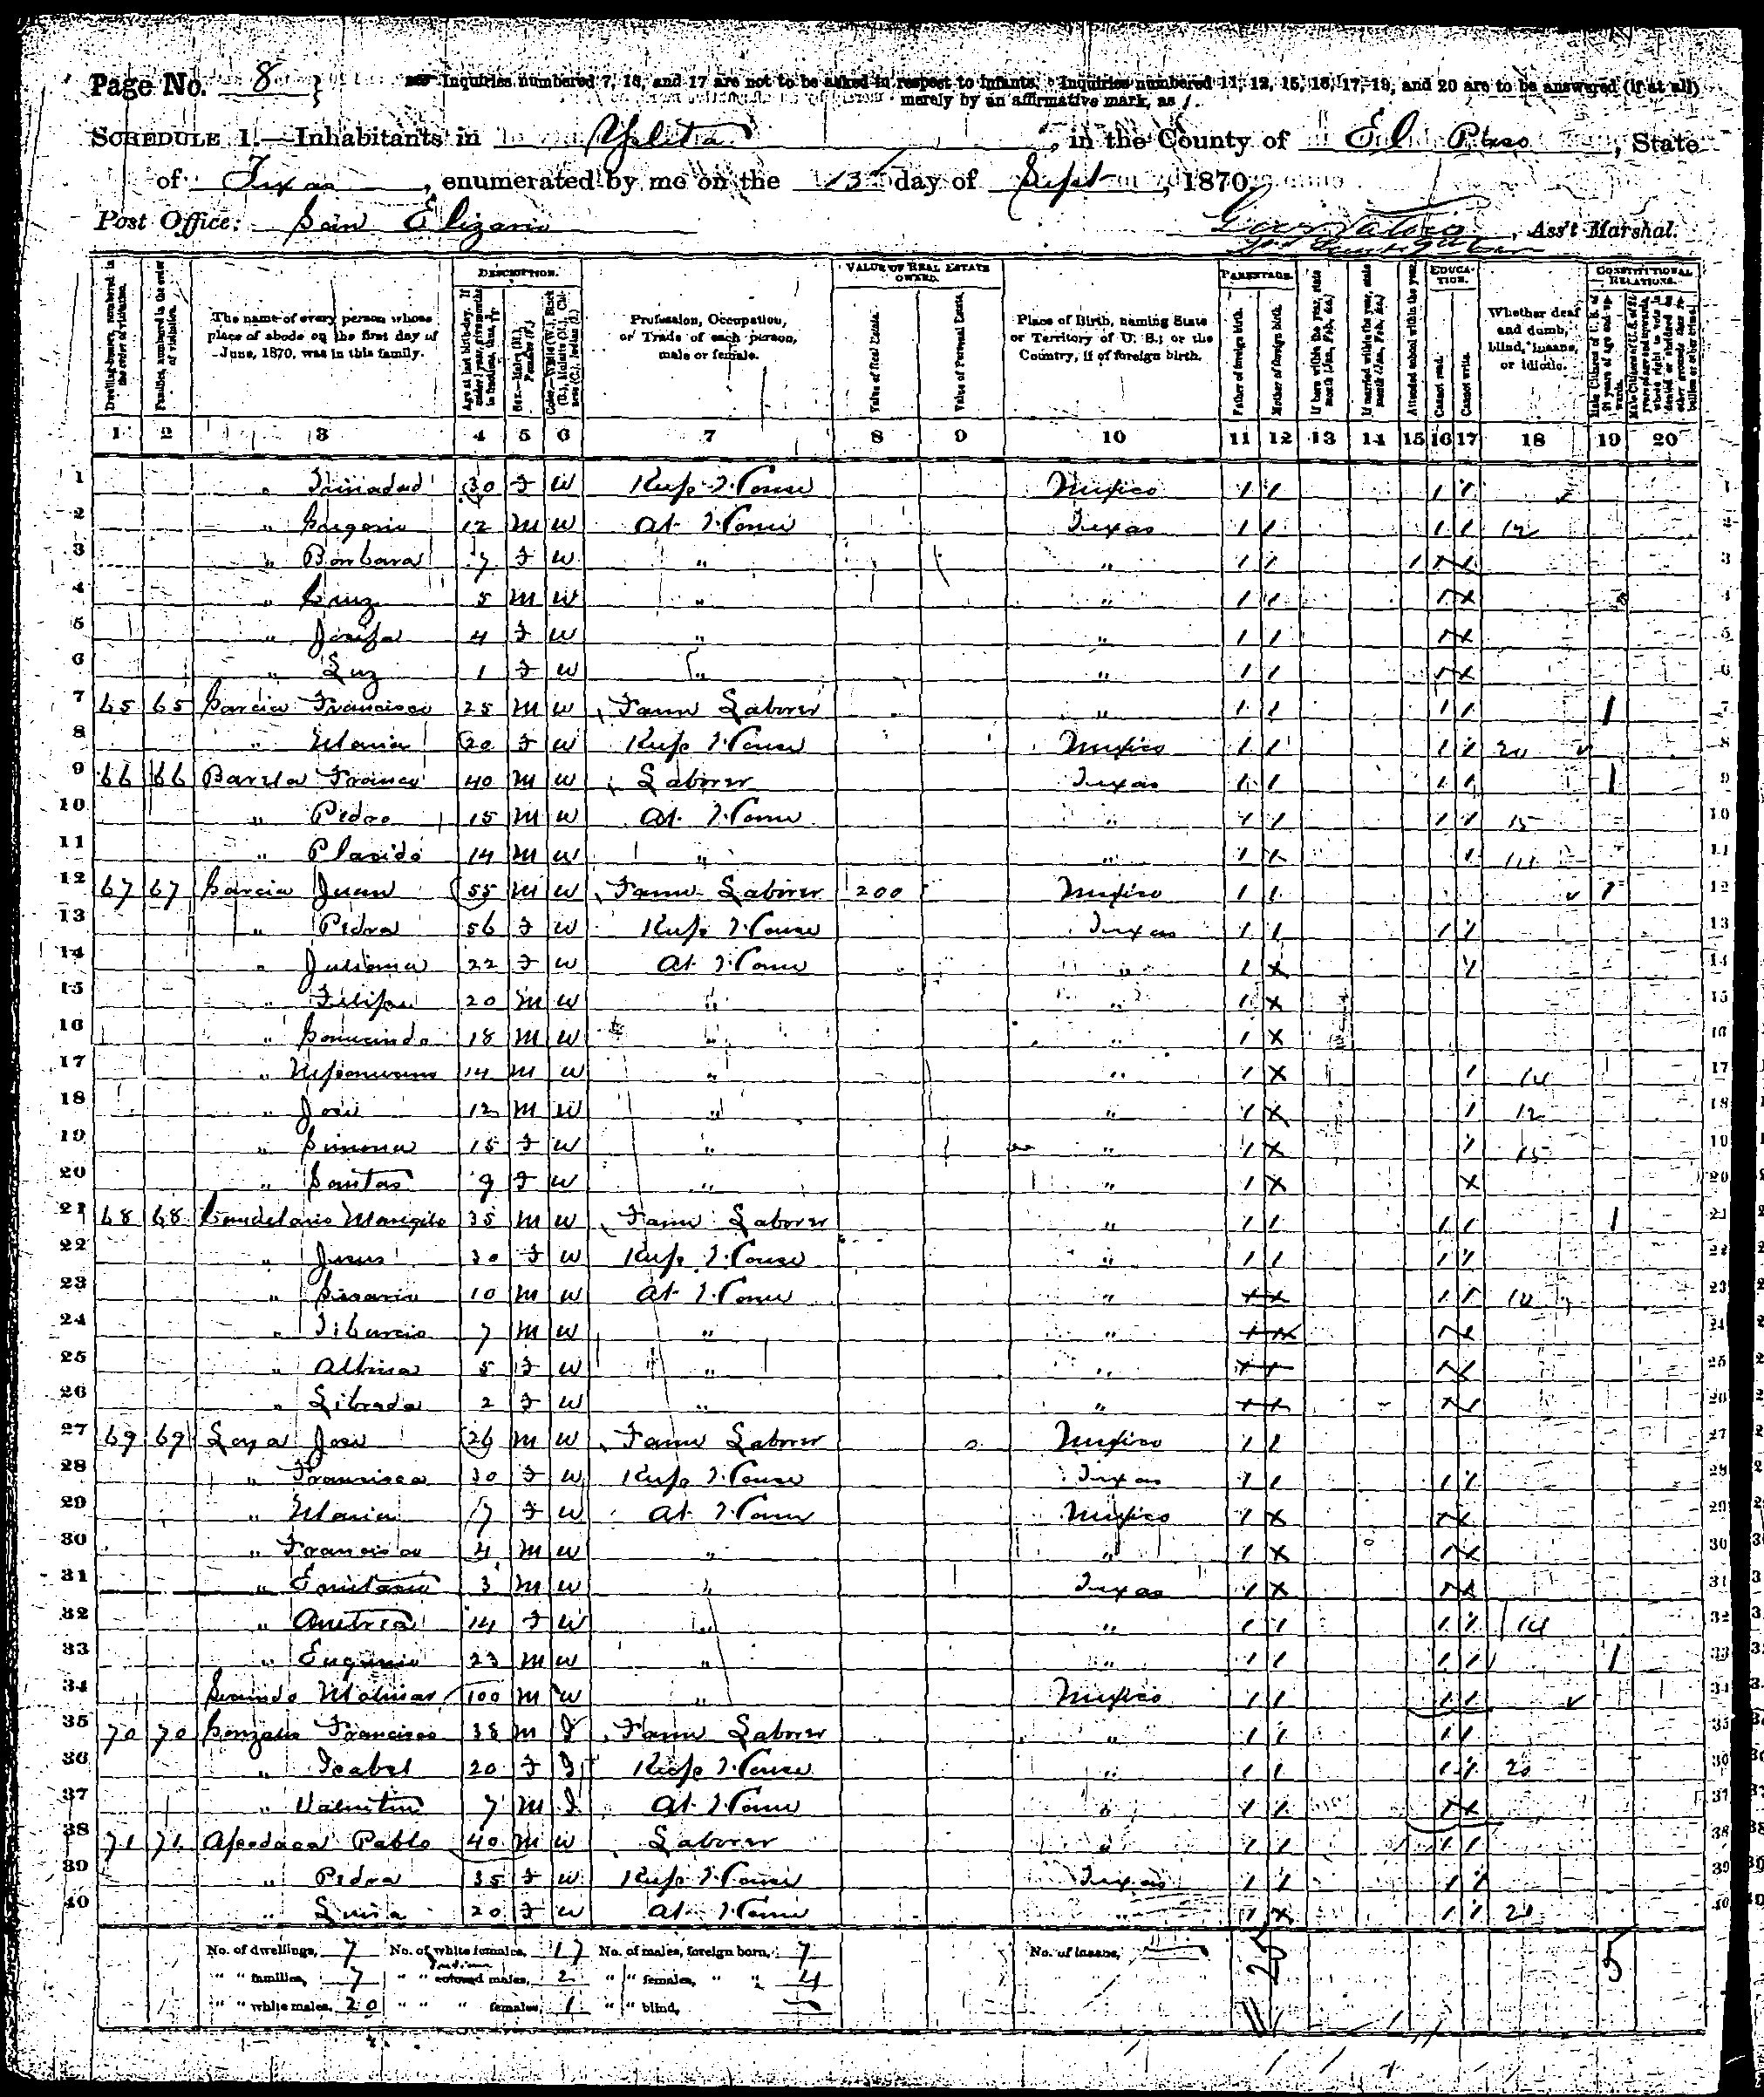 Page No. 8
Inquiries numbered 7, 16, and 17 are not to be asked in respect to infants. Inquiries numbered 11, 12, 15, 16, 17, 19, and 20 are to be answered (if at all)
merely by an affirmative mark, as /.
SCHEDULE 1.—Inhabitants in Ysleta, in the County of El Paso, State
of Texas, enumerated by me on the 13 day of Sept, 1870.
Post Office: San Elizario , Ass't Marshal.
DESCRIPTION. VALUE OF REAL ESTATE OWNED. PARENTAGE. EDUCATION. CONSTITUTIONAL RELATIONS.
Dwelling-houses, numbered in the order of visitation.
Families, numbered in the order of visitation.
The name of every person whose place of abode on the first day of June, 1870, was in this family.
Age at last birth-day. If under 1 year, give months in fractions, thus, 3/12
Sex.—Males (M.), Females (F.)
Color.—White (W.), Black (B.), Mulatto (M.), Chinese (C.), Indian (I.)
Profession, Occupation, or Trade of each person, male or female.
Value of Real Estate.
Value of Personal Estate.
Place of Birth, naming State or Territory of U. S.; or the Country, if of foreign birth.
Father of foreign birth.
Mother of foreign birth.
If born within the year, state month (Jan., Feb., &c.)
If married within the year, state month (Jan., Feb., &c.)
Attended school within the year.
Cannot read.
Cannot write.
Whether deaf and dumb, blind, insane, or idiotic.
Male Citizens of U. S. of 21 years of age and upwards.
Male Citizens of U. S. of 21 years of age and upwards, whose right to vote is denied or abridged on other grounds than rebellion or other crime.
1 2 3 4 5 6 7 8 9 10 11 12 13 14 15 16 17 18 19 20
1 " Trinadad 30 F W Keeps House Mexico / / / / 1
2 " 12 M W At Home Texas / / / / 12 2
3 " Barbara 7 F W " " / / / / / 3
4 " Cruz 5 M W " " / / / / 4
5 " Josefa 4 F W " " / / / / 5
6 " Luz 1 F W " " / / / / 6
7 65 65 Garcia Francisco 25 M W Farm Laborer " / / / / 1 7
8 " Maria 20 F W Keeps House Mexico / / / / 20 8
9 66 66 Barela Franco 40 M W Laborer Texas / / / / 1 9
10 " Pedro 15 M W At Home " / / / / 15 10
11 " Placido 14 M W " " / / / 14 11
12 67 67 Garcia Juan 55 M W Farm Laborer 200 Mexico / / 1 12
13 " Pedra 56 F W Keeps House Texas / / / / 13
14 " Juliana 22 F W At Home " / X / 14
15 " Felipe 20 M W " " / X 15
16 " Gomecindo 18 M W " " / X 16
17 " Nepomuceno 14 M W " " / X / 14 17
18 " Jose 12 M W " " / X / 12 18
19 " Simona 15 F W " " / X / 15 19
20 " Santos 9 F W " " / X X 20
21 68 68 Candelario 35 M W Farm Laborer " / / / / 1 21
22 " Jesus 30 F W Keeps House " / / / / 22
23 " Cesario 10 M W At Home " X X / / 10 23
24 " Tiburcio 7 M W " " X X / / 24
25 " Albina 5 F W " " X X / / 25
26 " Librada 2 F W " " X X / / 26
27 69 69 Loya Jose 26 M W Farm Laborer Mexico / / 27
28 " Francisca 30 F W Keeps House Texas / / / / 28
29 " Maria 7 F W At Home Mexico / X / / 29
30 " Francisco 4 M W " " / X / X 30
31 " 3 M W " Texas / X / X 31
32 " 14 F W " " / / / / 14 32
33 " Eugenio 23 M W " " / / / / 1 33
34 Molinar 100 M W " Mexico / / / / 34
35 70 70 Gonzales Francisco 38 M I Farm Laborer " / / / / 35
36 " Isabel 20 F I Keeps House " / / / / 20 36
37 " Valentin 7 M I At Home " / / / X 37
38 71 71 Apodaca Pablo 40 M W Laborer " / / / / 38
39 " Pedra 35 F W Keeps House Texas / / / / 39
40 " Luisa 20 F W At Home " / X / / 20 40
No. of dwellings, 7 No. of white females, 17 No. of males, foreign born, 7 No. of insane,
" " families, 7 " " Indian colored males, 2 " " females, " " 4
" " white males, 20 " " " females, 1 " " blind,
5